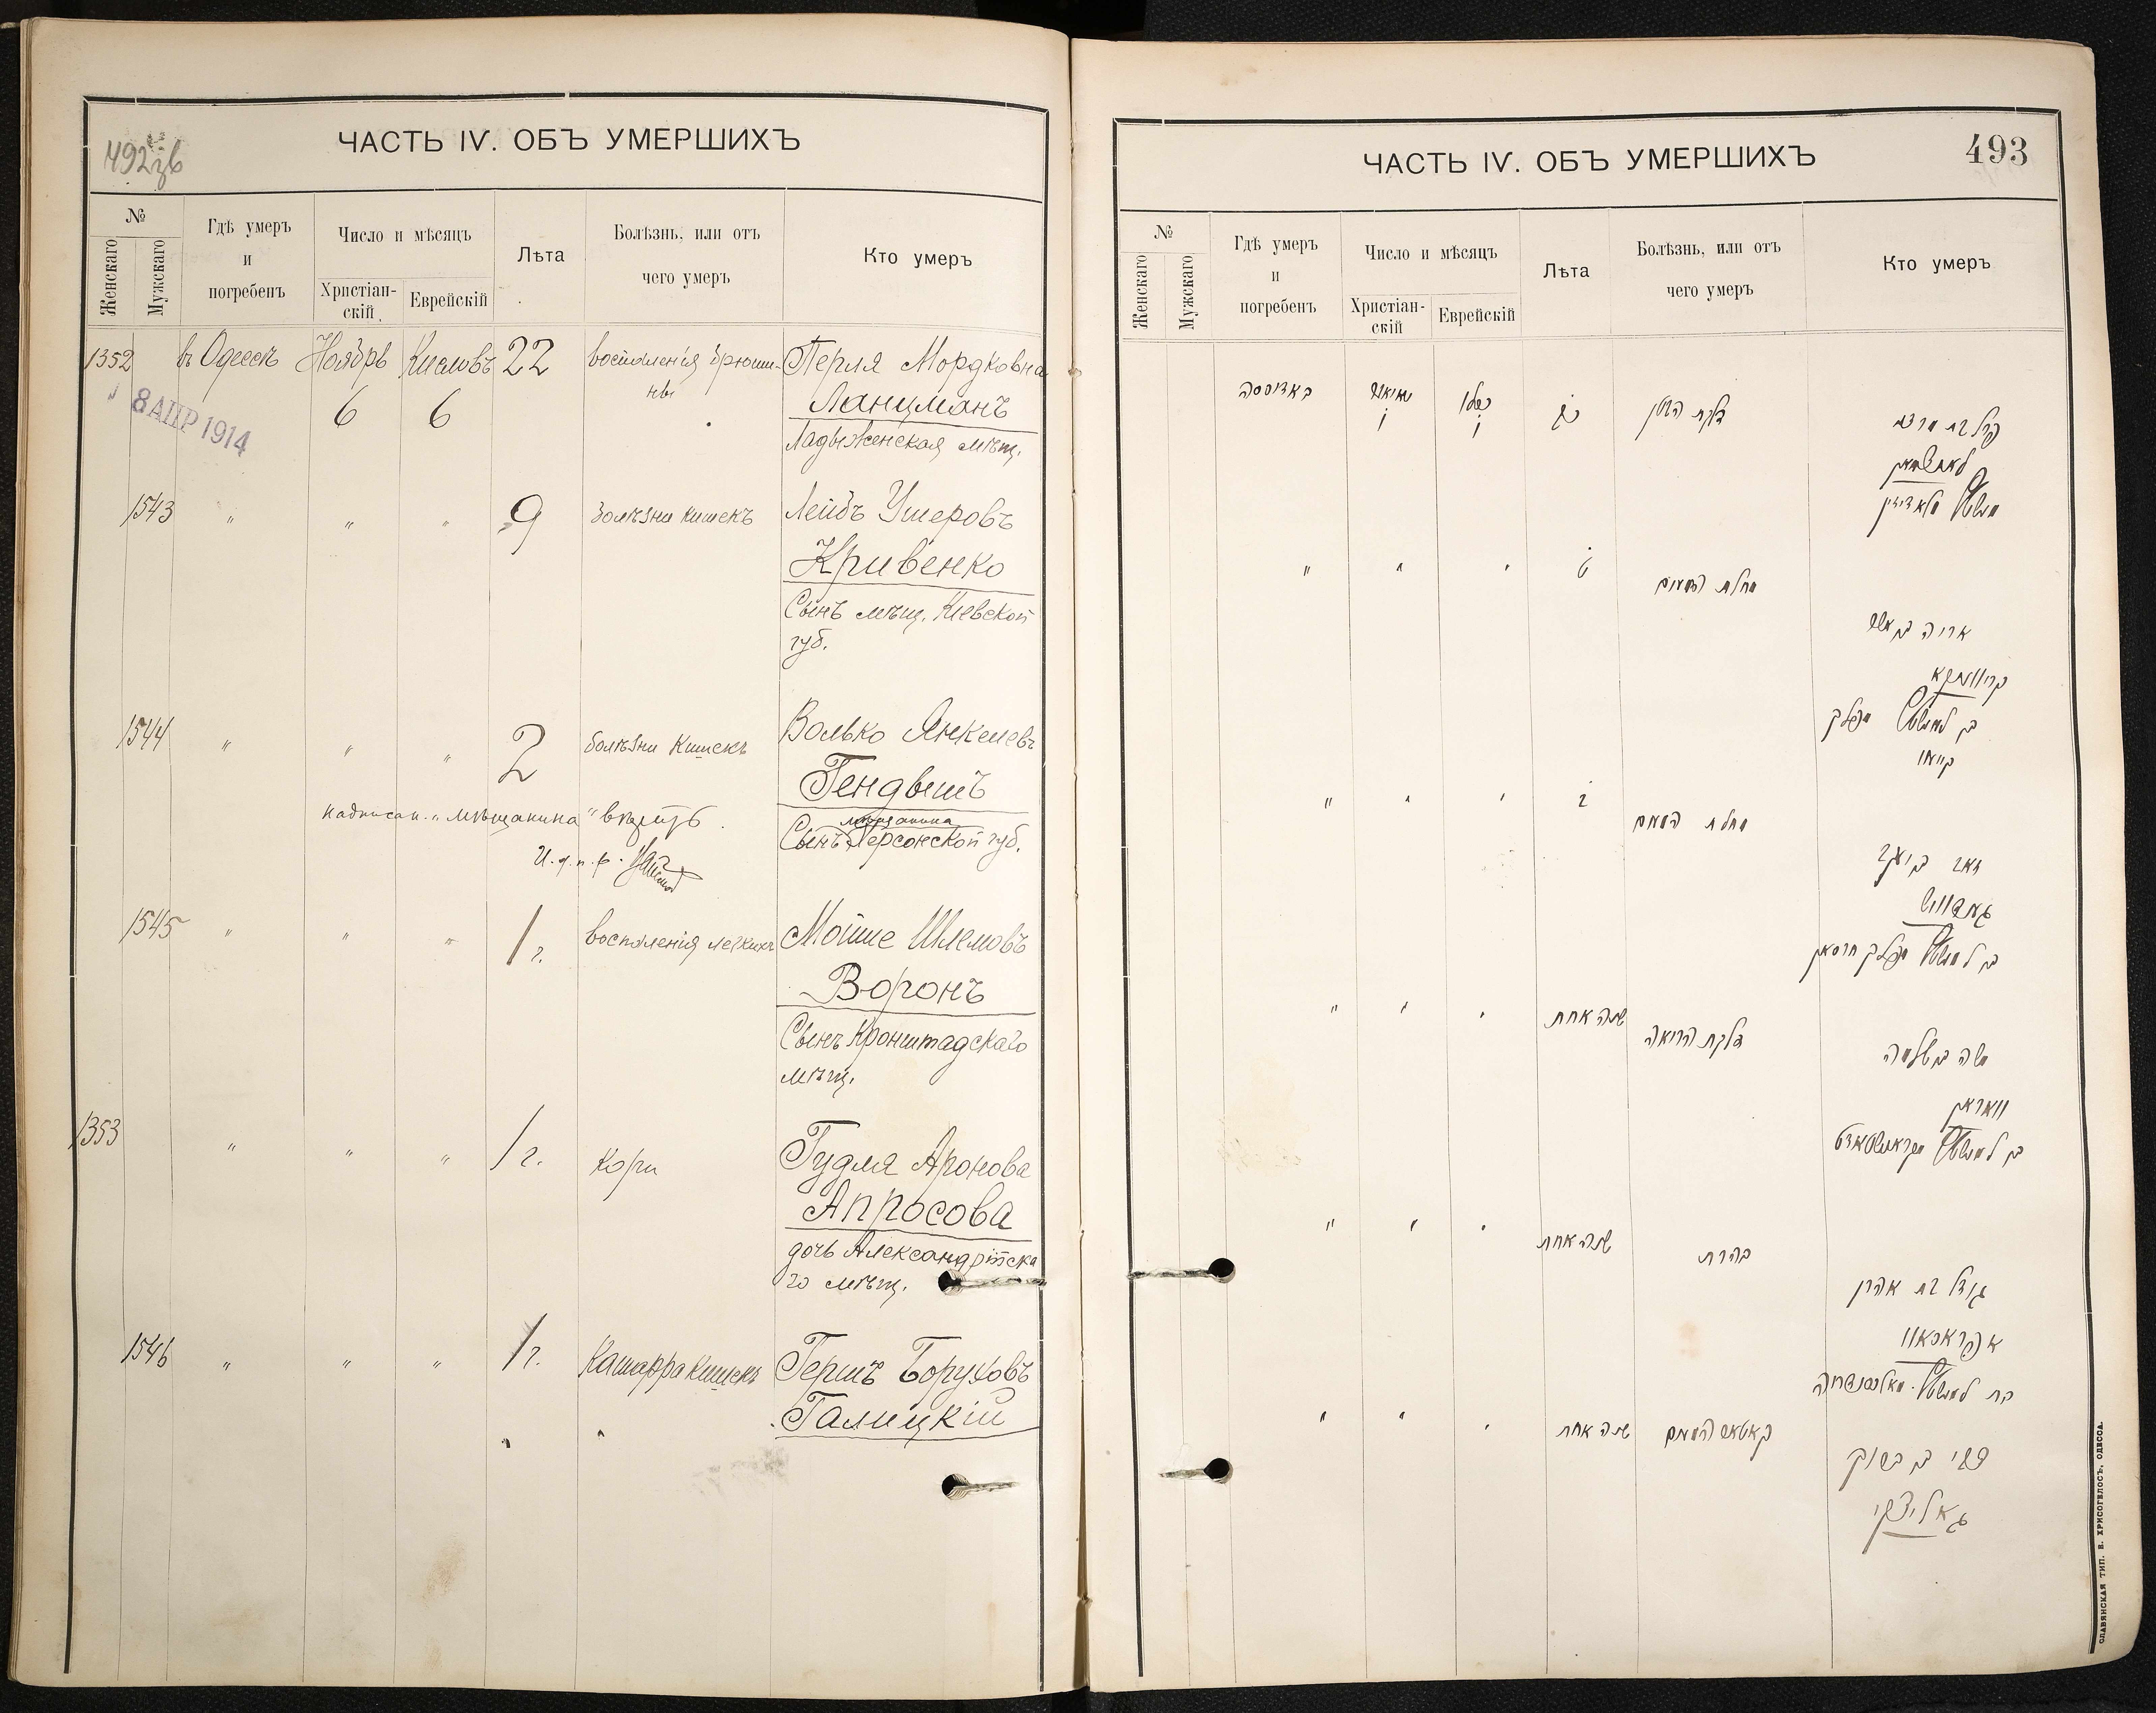 492 зв
ЧАСТЬ IV. ОБЪ УМЕРШИХЪ
№
Женскаго
Мужскаго
Гдѣ умеръ
и
погребенъ
Число и мѣсяцъ
Христіан-
скій
Еврейскій
Лѣта
Болѣзнь, или отъ
чего умеръ
Кто умеръ
1352 въ Одессѣ Ноябрь Кисловъ 22 воспаленія брюши- Перля Мордковна
6 6 ны Ланцманъ
8 АПР 1914
Ладыженская мѣщ.
1543 " " " 9 болѣзни кишекъ Лейбъ Ушеровъ
Кривенко
Сынъ мѣщ. Кіевской
губ.
1544 " " " 2 болѣзни кишекъ Волько Янкелевъ
Гендвешъ
надписан. „мѣщанина" вѣрить.
мѣщанина
Сынъ Херсонской губ.
И. д. п. р.
1545 " " " 1 г. воспаленія легкихъ Мойше Шлемовъ
Воронъ
Сынъ Кронштадскаго
мѣщ.
1353 " " " 1 г. кори Гудля Аронова
Апросова
дочь Александрійска
го мѣщ.
1546 " " " 1 г. Катарра кишекъ Гершъ Боруховъ
Галицкій
ЧАСТЬ IV. ОБЪ УМЕРШИХЪ
493
№
Женскаго
Мужскаго
Гдѣ умеръ
и
погребенъ
Число и мѣсяцъ
Христіан-
скій
Еврейскій
Лѣта
Болѣзнь, или отъ
чего умеръ
Кто умеръ
באדיססה
כסלו
ו
ו
כב
דלקת הבטן
פרל בת מרדכי
לאנצמאן
" ט
מחלת המעים
אריה בן אשר
קריווענקא
" ב
מחלת המעים
זאב בן יעקב
גענדוועש
" שנה אחת
דלקת הריאה
משה בן שלמה
וואראן
" שנה אחת
בהרת
גודל בת אהרן
אפראסאוו
" שנה אחת
קאטאר המעים
צבי בן ברוך
גאליצקי
СЛАВЯНСКАЯ ТИП. Е. ХРИСОГЕЛОСЪ, ОДЕССА.